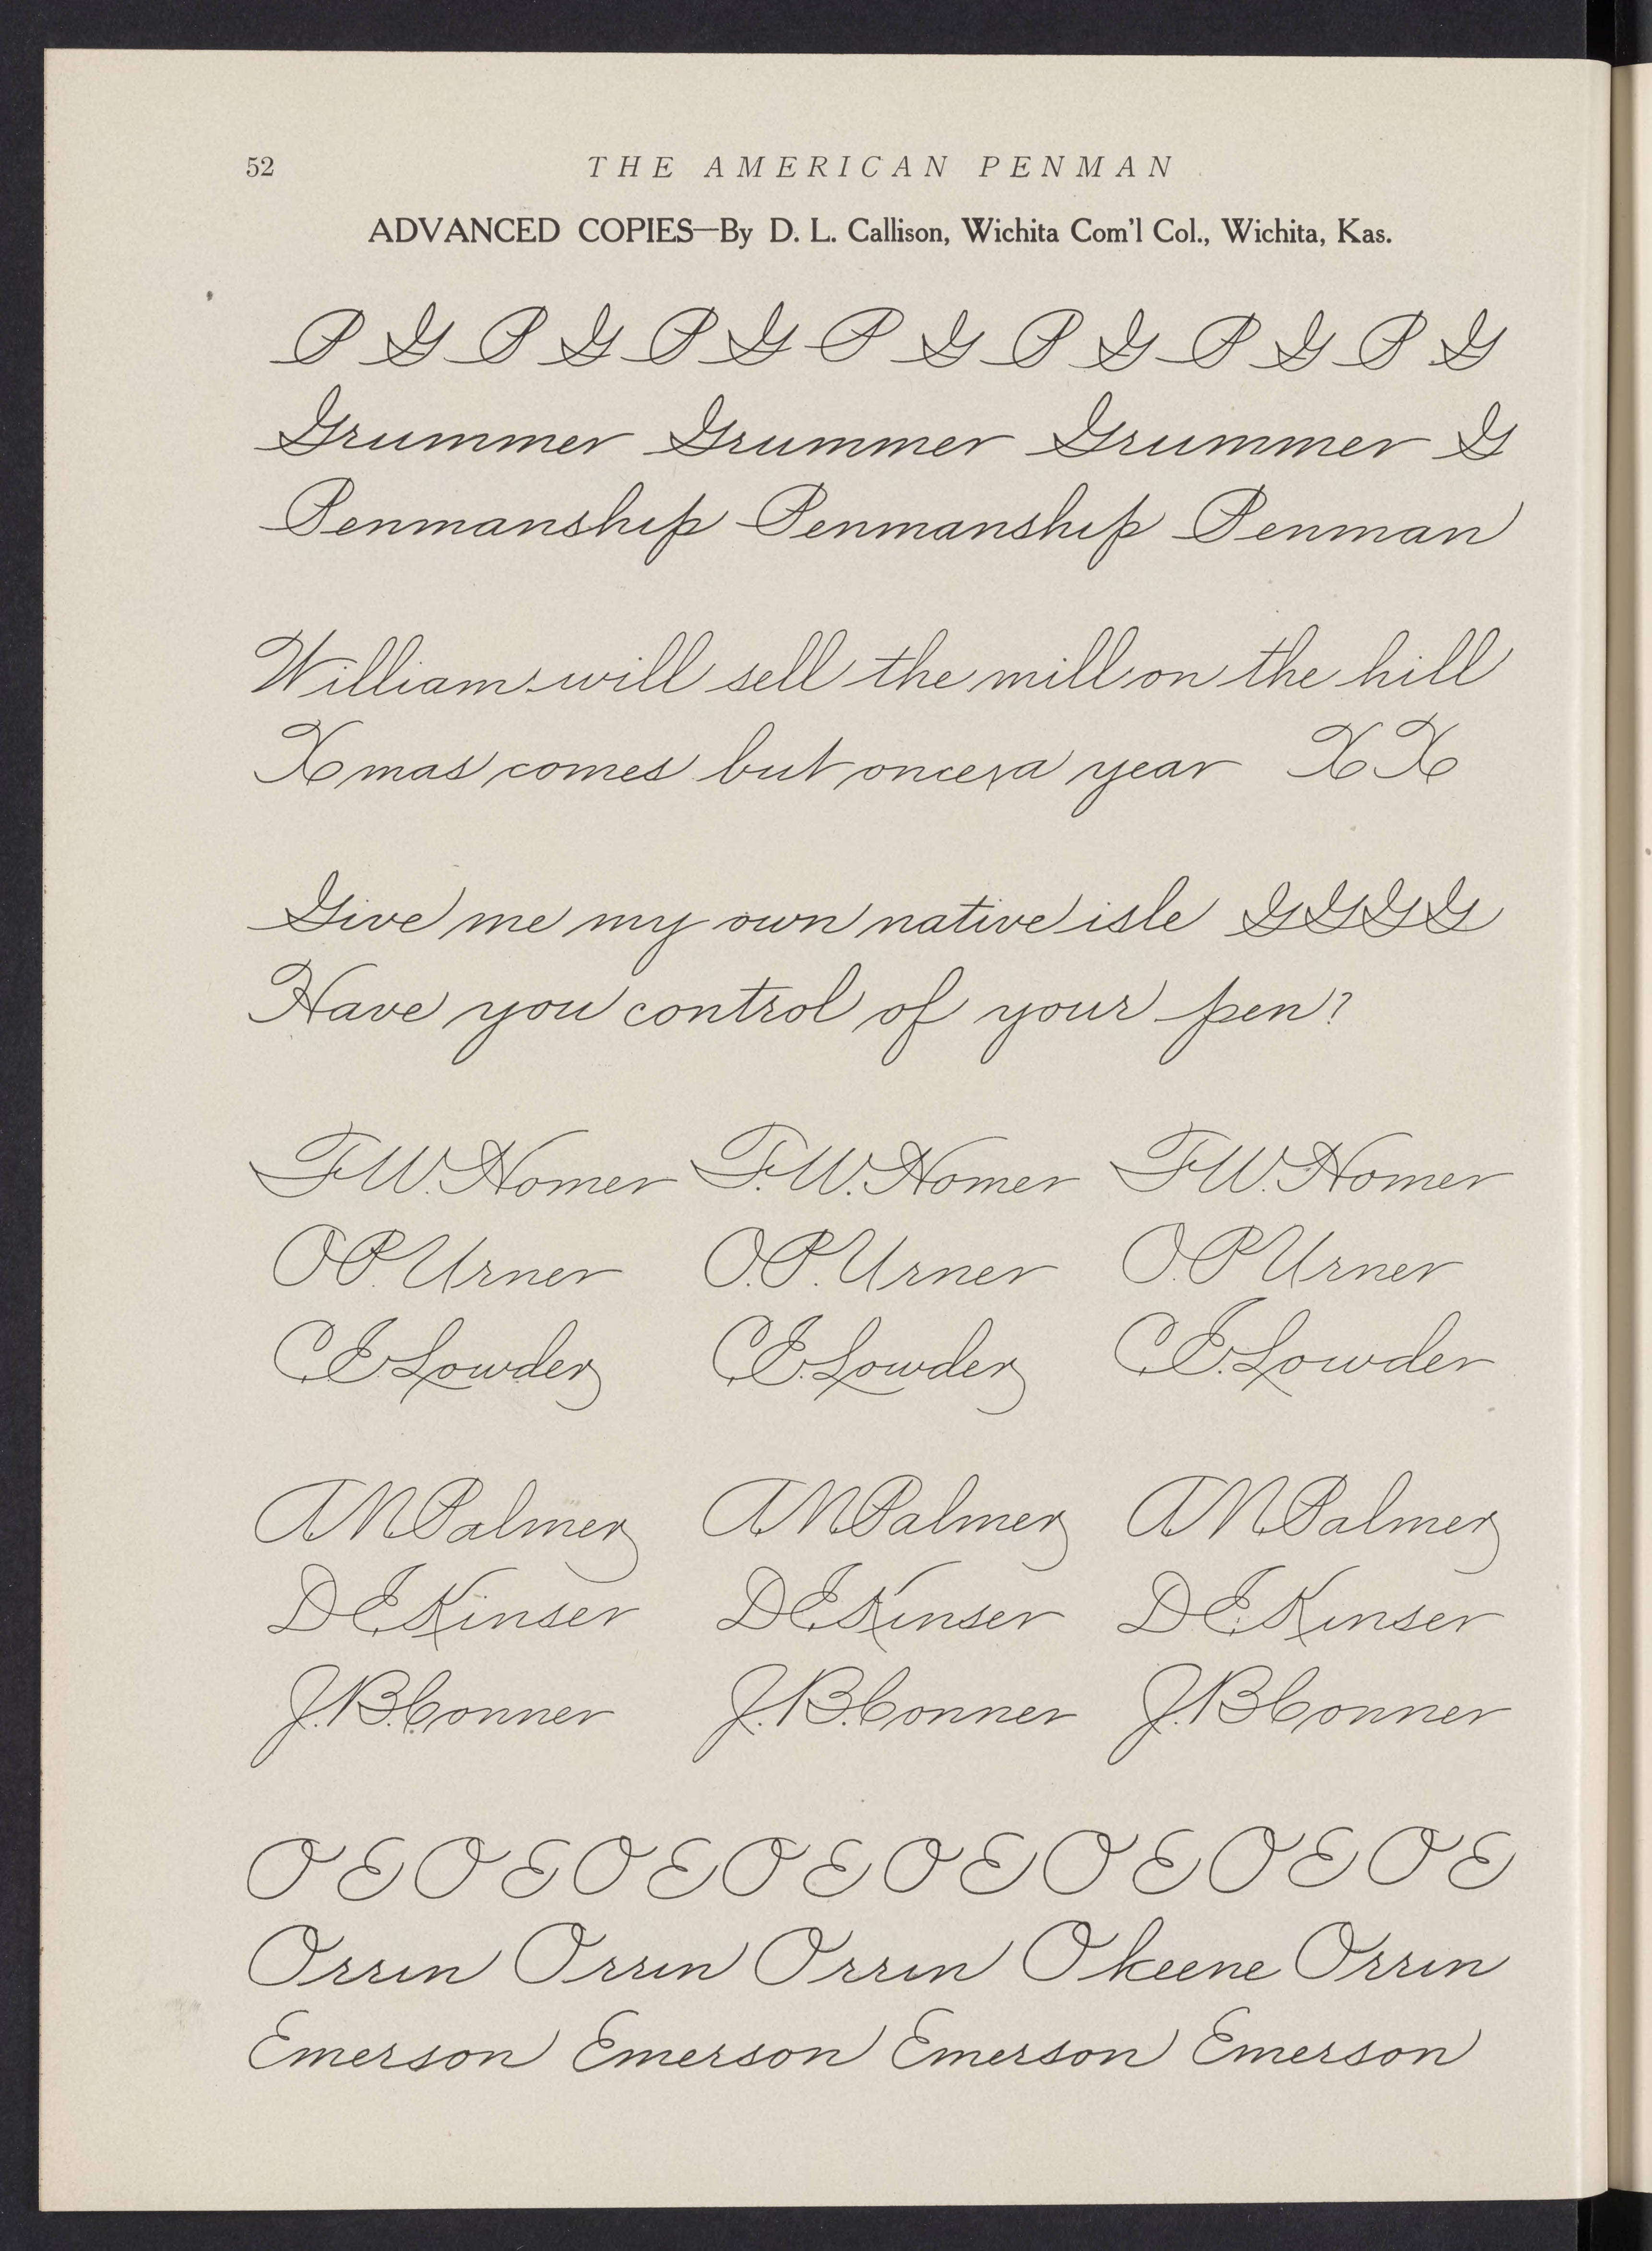 52 THE AMERICAN PENMAN
ADVANCED COPIES—By D. L. Callison, Wichita Com'l Col., Wichita, Kas.
P G P G P G P G P G P G P G
Grummer Grummer Grummer G
Penmanship Penmanship Penman
Williams will sell the mill on the hill
Xmas comes but once a year X X
Give me my own native isle G G G G
Have you control of your pen?
F W. Homer F. W. Homer F W. Homer
O P. Urner O. P. Urner O. P Urner
C. E. Lowder C. E. Lowder C. E. Lowder
A M Palmer A M Palmer A M Palmer
D E Kinser D E Kinser D E Kinser
J. B. Conner J. B. Conner J. B Conner
O E O E O E O E O E O E O E O E
Orrin Orrin Orrin Okeene Orrin
Emerson Emerson Emerson Emerson